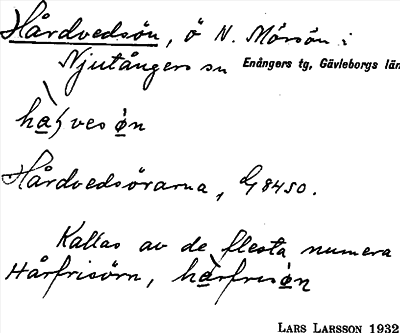 Hårdvedsön, ö N. Mörsön i
Njutångers sn Enångers tg, Gävleborgs län
Hårdvedsörarna, G 8450.
Kallas av de flesta numera
Hårfrisörn, hàrfrisön
LARS LARSSON 1932